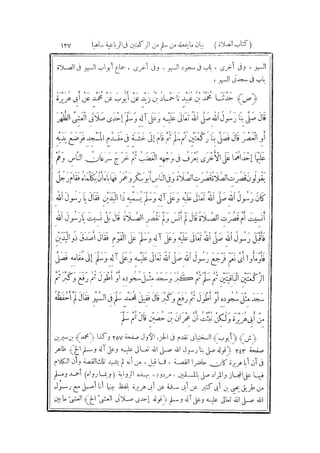 ( كتاب الصلاة ) بيان ما يفعله من سلم من الركعتين فى الرباعية ساهيا ١٢٧
السهو . وفى أخرى ، باب فى سجود السهو . وفى أخرى . جماع أبواب السهو فى الصلاة
باب فى سجدتى السهو .
(ص) حَدَّثَنَا مُحَمَّدُ بْنُ عُبَيْدٍ نَا حَمَّادُ بْنُ زَيْدٍ عَنْ أَيُّوبَ عَنْ مُحَمَّدٍ عَنْ أَبِى هُرَيْرَةَ
قَالَ صَلَّى بِنَا رَسُولُ اللهِ صَلَّى اللهُ تَعَالَى عَلَيْهِ وَعَلَى آلِهِ وَسَلَّمَ إِحْدَى صَلَاتَىِ الْعَشِىِّ الظُّهْرَ
أَوِ الْعَصْرَ قَالَ فَصَلَّى بِنَا رَكْعَتَيْنِ ثُمَّ سَلَّمَ ثُمَّ قَامَ إِلَى خَشَبَةٍ فِى مُقَدَّمِ الْمَسْجِدِ فَوَضَعَ يَدَيْهِ
عَلَيْهَا إِحْدَاهُمَا عَلَى الْأُخْرَى يُعْرَفُ فِى وَجْهِهِ الْغَضَبُ ثُمَّ خَرَجَ سَرَعَانُ النَّاسِ وَهُمْ
يَقُولُونَ قُصِرَتِ الصَّلَاةُ قُصِرَتِ الصَّلَاةُ وَفِى النَّاسِ أَبُو بَكْرٍ وَعُمَرُ فَهَابَاهُ أَنْ يُكَلِّمَاهُ فَقَامَ رَجُلٌ
كَانَ رَسُولُ اللهِ صَلَّى اللهُ تَعَالَى عَلَيْهِ وَعَلَى آلِهِ وَسَلَّمَ يُسَمِّيهِ ذَا الْيَدَيْنِ فَقَالَ يَا رَسُولَ اللهِ
أَنَسِيتَ أَمْ قُصِرَتِ الصَّلَاةُ قَالَ لَمْ أَنْسَ وَلَمْ تُقْصَرِ الصَّلَاةُ قَالَ بَلْ نَسِيتَ يَا رَسُولَ اللهِ
فَأَقْبَلَ رَسُولُ اللهِ صَلَّى اللهُ تَعَالَى عَلَيْهِ وَعَلَى آلِهِ وَسَلَّمَ عَلَى الْقَوْمِ فَقَالَ أَصَدَقَ ذُو الْيَدَيْنِ
فَأَوْمَأُوا أَىْ نَعَمْ فَرَجَعَ رَسُولُ اللهِ صَلَّى اللهُ تَعَالَى عَلَيْهِ وَعَلَى آلِهِ وَسَلَّمَ إِلَى مَقَامِهِ فَصَلَّى
الرَّكْعَتَيْنِ الْبَاقِيَتَيْنِ ثُمَّ سَلَّمَ ثُمَّ كَبَّرَ وَسَجَدَ مِثْلَ سُجُودِهِ أَوْ أَطْوَلَ ثُمَّ رَفَعَ وَكَبَّرَ ثُمَّ
سَجَدَ مِثْلَ سُجُودِهِ أَوْ أَطْوَلَ ثُمَّ رَفَعَ وَكَبَّرَ قَالَ فَقِيلَ لِمُحَمَّدٍ سَلَّمَ فِى السَّهْوِ فَقَالَ لَمْ أَحْفَظْهُ
مِنْ أَبِى هُرَيْرَةَ وَلَكِنْ نُبِّئْتُ أَنَّ عِمْرَانَ بْنَ حُصَيْنٍ قَالَ ثُمَّ سَلَّمَ
(ش) (أيوب) السختيانى تقدم فى الجزء الأول صفحة ٢٥٧ وكذا (محمد) بن سيرين
صفحة ٢٤٣ (قوله صلى بنا رسول الله صلى الله تعالى عليه وعلى آله وسلم الخ) ظاهر
فى أن أبا هريرة كان حاضرا القصة . فما قيل ، من أنه لم يشهد تلك القصة وأن الكلام
فيها على المجاز والمراد صلى بالمسلمين . مردود ، بهذه الرواية (وبما رواه) أحمد ومسلم
من طريق يحيى بن أبى كثير عن أبى سلمة عن أبى هريرة بلفظ بينما أنا أصلى مع رسول
الله صلى الله تعالى عليه وعلى آله وسلم (قوله إحدى صلاتى العشى الخ) العشى ما بين